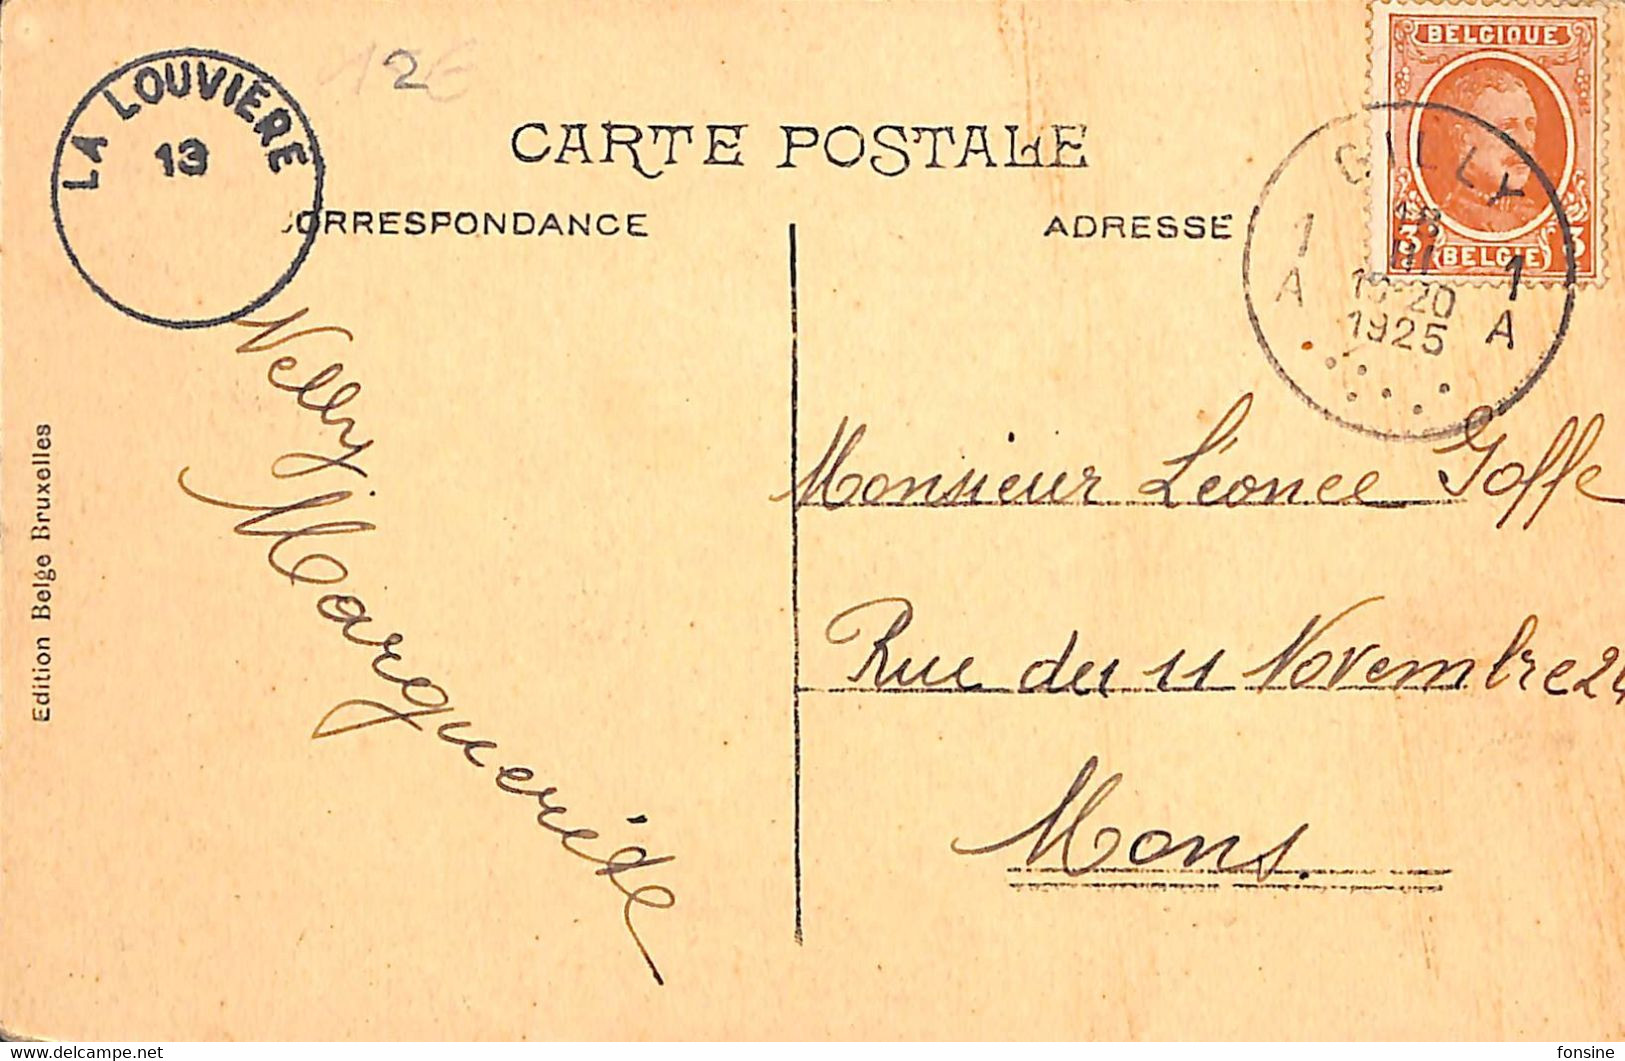 LA LOUVIERE
13
12€
2
CARTE POSTALE
CORRESPONDANCE
ADRESSE
BELGIQUE
3 BELGIE 3
GILLY
1 18 1
III
A 19-20 A
1925
Nelly
Marguerite
Monsieur Léonce Goffe
Rue du 11 Novembre 24
Mons.
Edition Belge Bruxelles
delcampe.net
fonsine